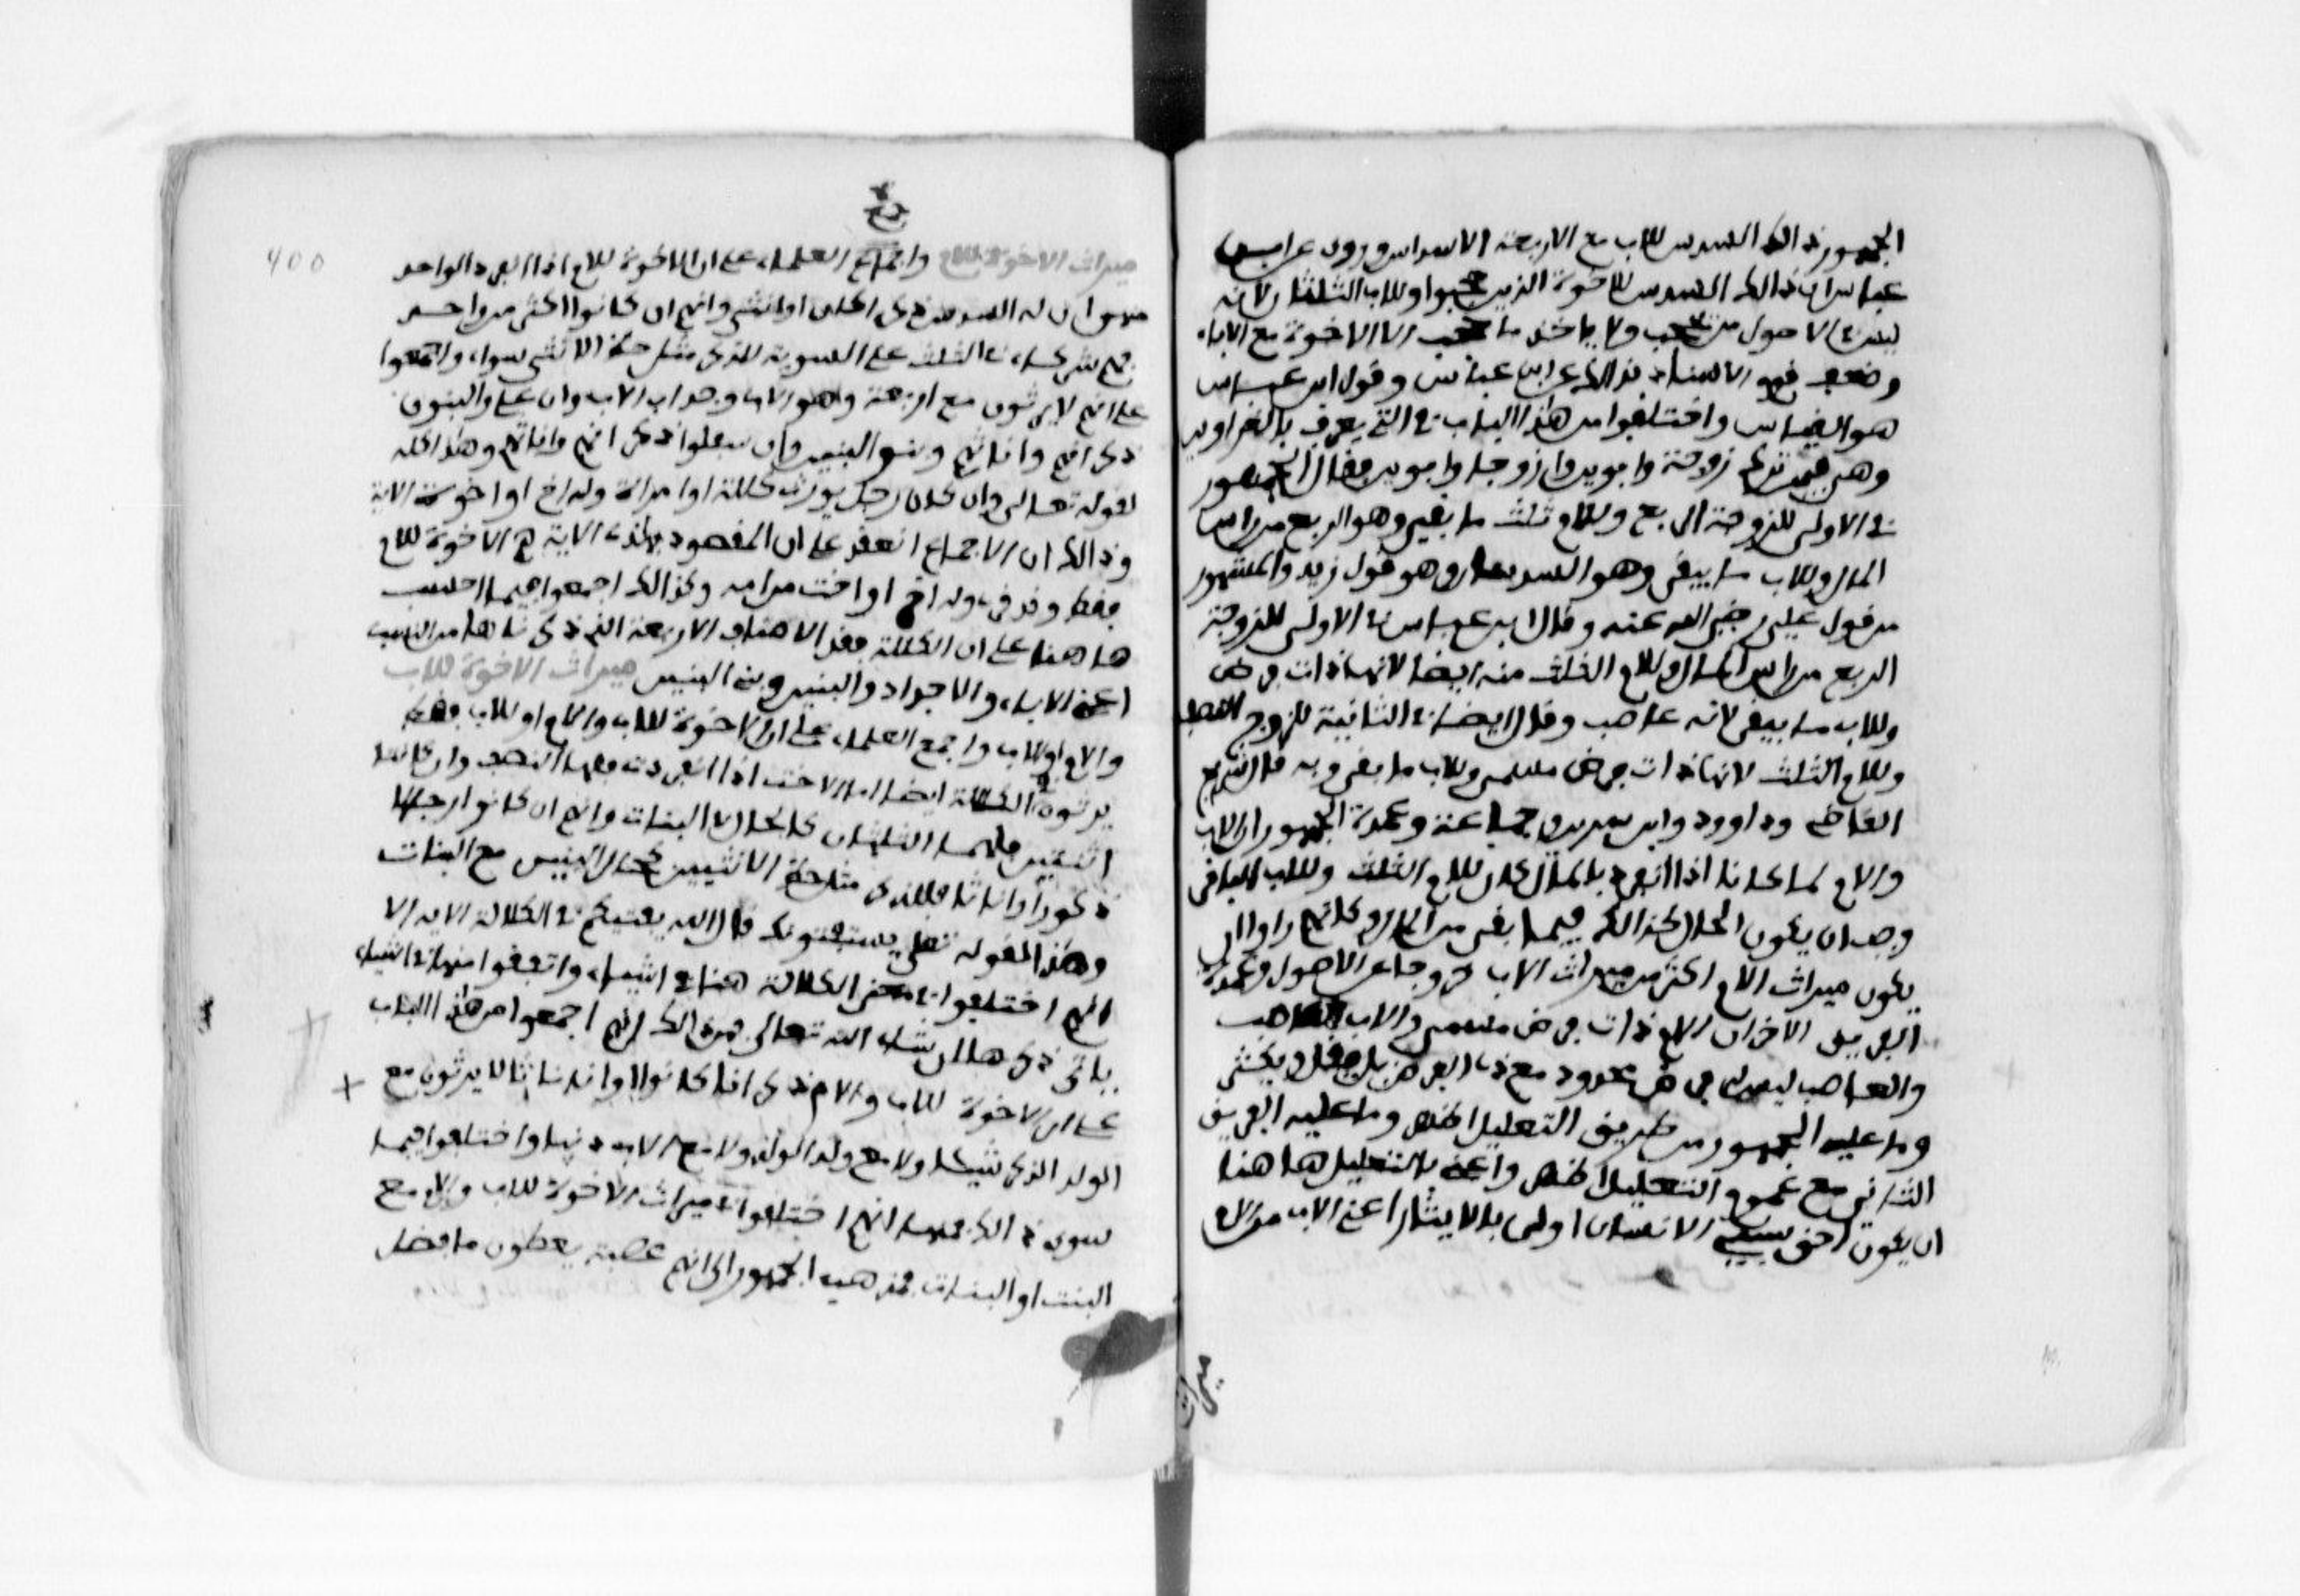 الجمهور ذالك السدس للاب مع الاربعة الاسداس وروي عن ابن
عباس ان ذالك السدس للاخوة الذين حجبوا وللاب الثلثان لانه
ليس في الاصول من يحجب ولا ياخذ ما حجب الا الاخوة مع الاباء
وضعف قوم الاسناد بذالك عن ابن عباس وقول ابن عباس
هو القياس واختلفوا من هذا الباب في التي تعرف بالغراوين
وهي فيمن ترك زوجة وابوين او زوجا وابوين فقال الجمهور
في الاولى للزوجة الربع وللام ثلث ما بقي وهو الربع من راس
المال وللاب ما بقي وهو النصف وهو قول زيد والمشهور
من قول علي رضي الله عنه وقال ابن عباس في الاولى للزوجة
الربع من راس المال وللام الثلث منه ايضا لانها ذات فرض
وللاب ما بقي لانه عاصب وقال ايضا في الثانية للزوج النصف
وللام الثلث لانها ذات فرض مسمى وللاب ما بقي وبه قال شريح
القاضي وداوود وابن سيرين وجماعة وعمدة الجمهور ان الاب
والام لما كانا اذا انفردا بالمال كان للام الثلث وللاب الباقي
وجب ان يكون الحال كذالك فيما بقي من المال وكانهم راوا ان
يكون ميراث الام اكثر من ميراث الاب خروجا عن الاصول وعمدة
الفريق الاخر ان الام ذات فرض مسمى والاب عاصب
والعاصب ليس له فرض محدود مع ذي الفرض بل يقل ويكثر
وما عليه الجمهور من طريق التعليل اظهر وما عليه الفريق
الثاني مع عدم التعليل اظهر واعني بالتعليل هاهنا
ان يكون احق سببي الانسان اولى بالايثار اعني الاب من الام
ميراث
400
ميراث الاخوة للام واجمع العلماء على ان الاخوة للام اذا انفرد الواحد
منهم ان له السدس ذكرا كان او انثى وانهم ان كانوا اكثر من واحد
فهم شركاء في الثلث على السوية للذكر مثل حظ الانثى سواء واجمعوا
على انهم لا يرثون مع اربعة وهم الاب والجد اب الاب وان علا والبنون
ذكرانهم واناثهم وبنو البنين وان سفلوا ذكرانهم واناثهم وهذا كله
لقوله تعالى وان كان رجل يورث كللة او امراة وله اخ او اخت الاية
وذالك ان الاجماع انعقد على ان المقصود بهذه الاية هم الاخوة للام
فقط وقد قرئ وله اخ او اخت من امه وكذالك اجمعوا فيما احسب
هاهنا على ان الكللة فقد الاصناف الاربعة التي ذكرناها من النسب
اعني الاباء والاجداد والبنين وبني البنين ميراث الاخوة للاب
والام او للاب واجمع العلماء على ان الاخوة للاب والام او للاب فقط
يرثون في الكللة ايضا اما الاخت اذا انفردت فلها النصف وان كانتا
اثنتين فلهما الثلثان كالحال في البنات وانهم ان كانوا رجالا
ذكورا واناثا فللذكر مثل حظ الانثيين كحال البنين مع البنات
وهذا لقوله تعلى يستفتونك قل الله يفتيكم في الكلالة الاية الا
انهم اختلفوا في معنى الكلالة هنا في اشياء واتفقوا منها في اشياء
ياتي ذكرها ان شاء الله تعالى فمن ذالك انهم اجمعوا من هذا الباب
على ان الاخوة للاب والام ذكرانا كانوا او اناثا لا يرثون مع
الولد الذكر شيئا ولا مع ولد الولد ولا مع الاب دنيا واختلفوا فيما
سوى ذالك فمنها انهم اختلفوا في ميراث الاخوة للاب والام مع
البنت او البنات فذهب الجمهور الى انهم عصبة يعطون ما فضل